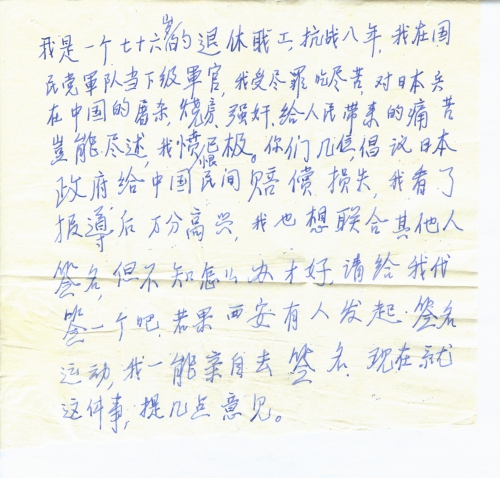 我是一个七十六岁的退休职工,抗战八年,我在国
民党軍队当下级軍官,我受尽罪吃尽苦.对日本兵
在中国的屠杀,烧房,强奸,给人民带来的痛苦
豈能尽述,我愤恨已极。你们几位,倡议日本
政府给中国民间赔偿损失,我看了
报導后万分高兴,我也想联合其他人
签名,但不知怎么办才好,请给我代
签一个吧.若果西安有人发起.签名
运动,我一能亲自去签名.现在就
这件事,提几点意见。